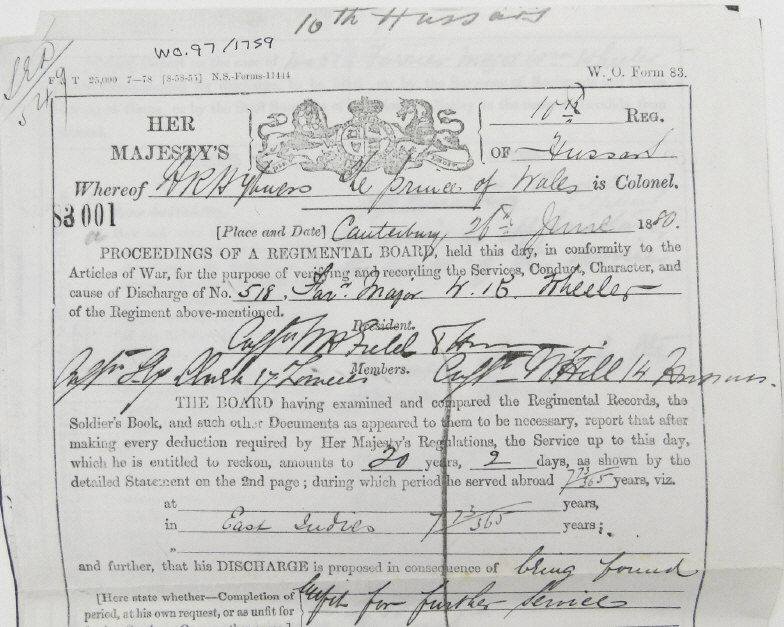 10th Hussars
WO.97/1759
549
F T 25,000 7—78 [8-58-55] N.S.-Forms-11414
W. O. Form 83.
HER
MAJESTY'S
10th REG.
OF Hussars
Whereof HRH The prince of Wales is Colonel.
83001
[Place and Date] Canterbury 26th June 1880.
PROCEEDINGS OF A REGIMENTAL BOARD, held this day, in conformity to the
Articles of War, for the purpose of verifying and recording the Services, Conduct, Character, and
cause of Discharge of No. 518. Farr. Major W. R. Wheeler
of the Regiment above-mentioned.
President.
Captn Field 8 Hus
Members.
Captn Clark 17 Lancers
Captn Hill 14 Hussars.
THE BOARD having examined and compared the Regimental Records, the
Soldier's Book, and such other Documents as appeared to them to be necessary, report that after
making every deduction required by Her Majesty's Regulations, the Service up to this day,
which he is entitled to reckon, amounts to 20 years, 2 days, as shown by the
detailed Statement on the 2nd page; during which period he served abroad 7 73/365 years, viz.
at years,
in East Indies 7 73/365 years;
"
and further, that his DISCHARGE is proposed in consequence of being found
[Here state whether—Completion of
period, at his own request, or as unfit for
unfit for further Service